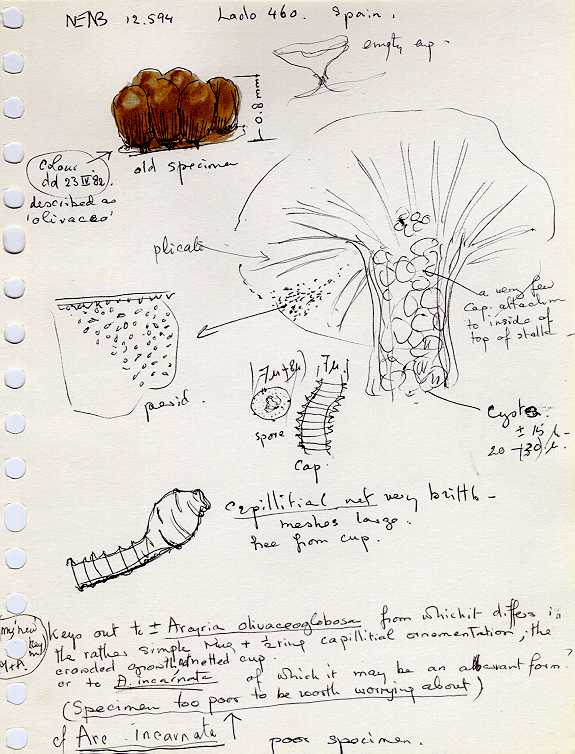 NENB 12.594 Lado 460. Spain.
empty cup –
0.8 mm
old specimen
Colour
dd 23 IV 82.
described as
'olivaceo'
plicate
a very few
Cap. attachm
to inside of
top of stalk –
perid.
7µ+8µ
7µ.
spore
Cap.
Cysts
± 15 µ
20 – 30 µ.
Capillitial net very brittle –
meshes large.
free from cup.
my 'new'
key
Keys out to ± Arcyria olivaceoglobosa from which it differs in
the rather simple + ½ ring capillitial ornamentation, the
crowded growth netted cup.
or to A. incarnata of which it may be an aberrant form?
(Specimen too poor to be worth worrying about)
cf Arc. incarnata
poor specimen.